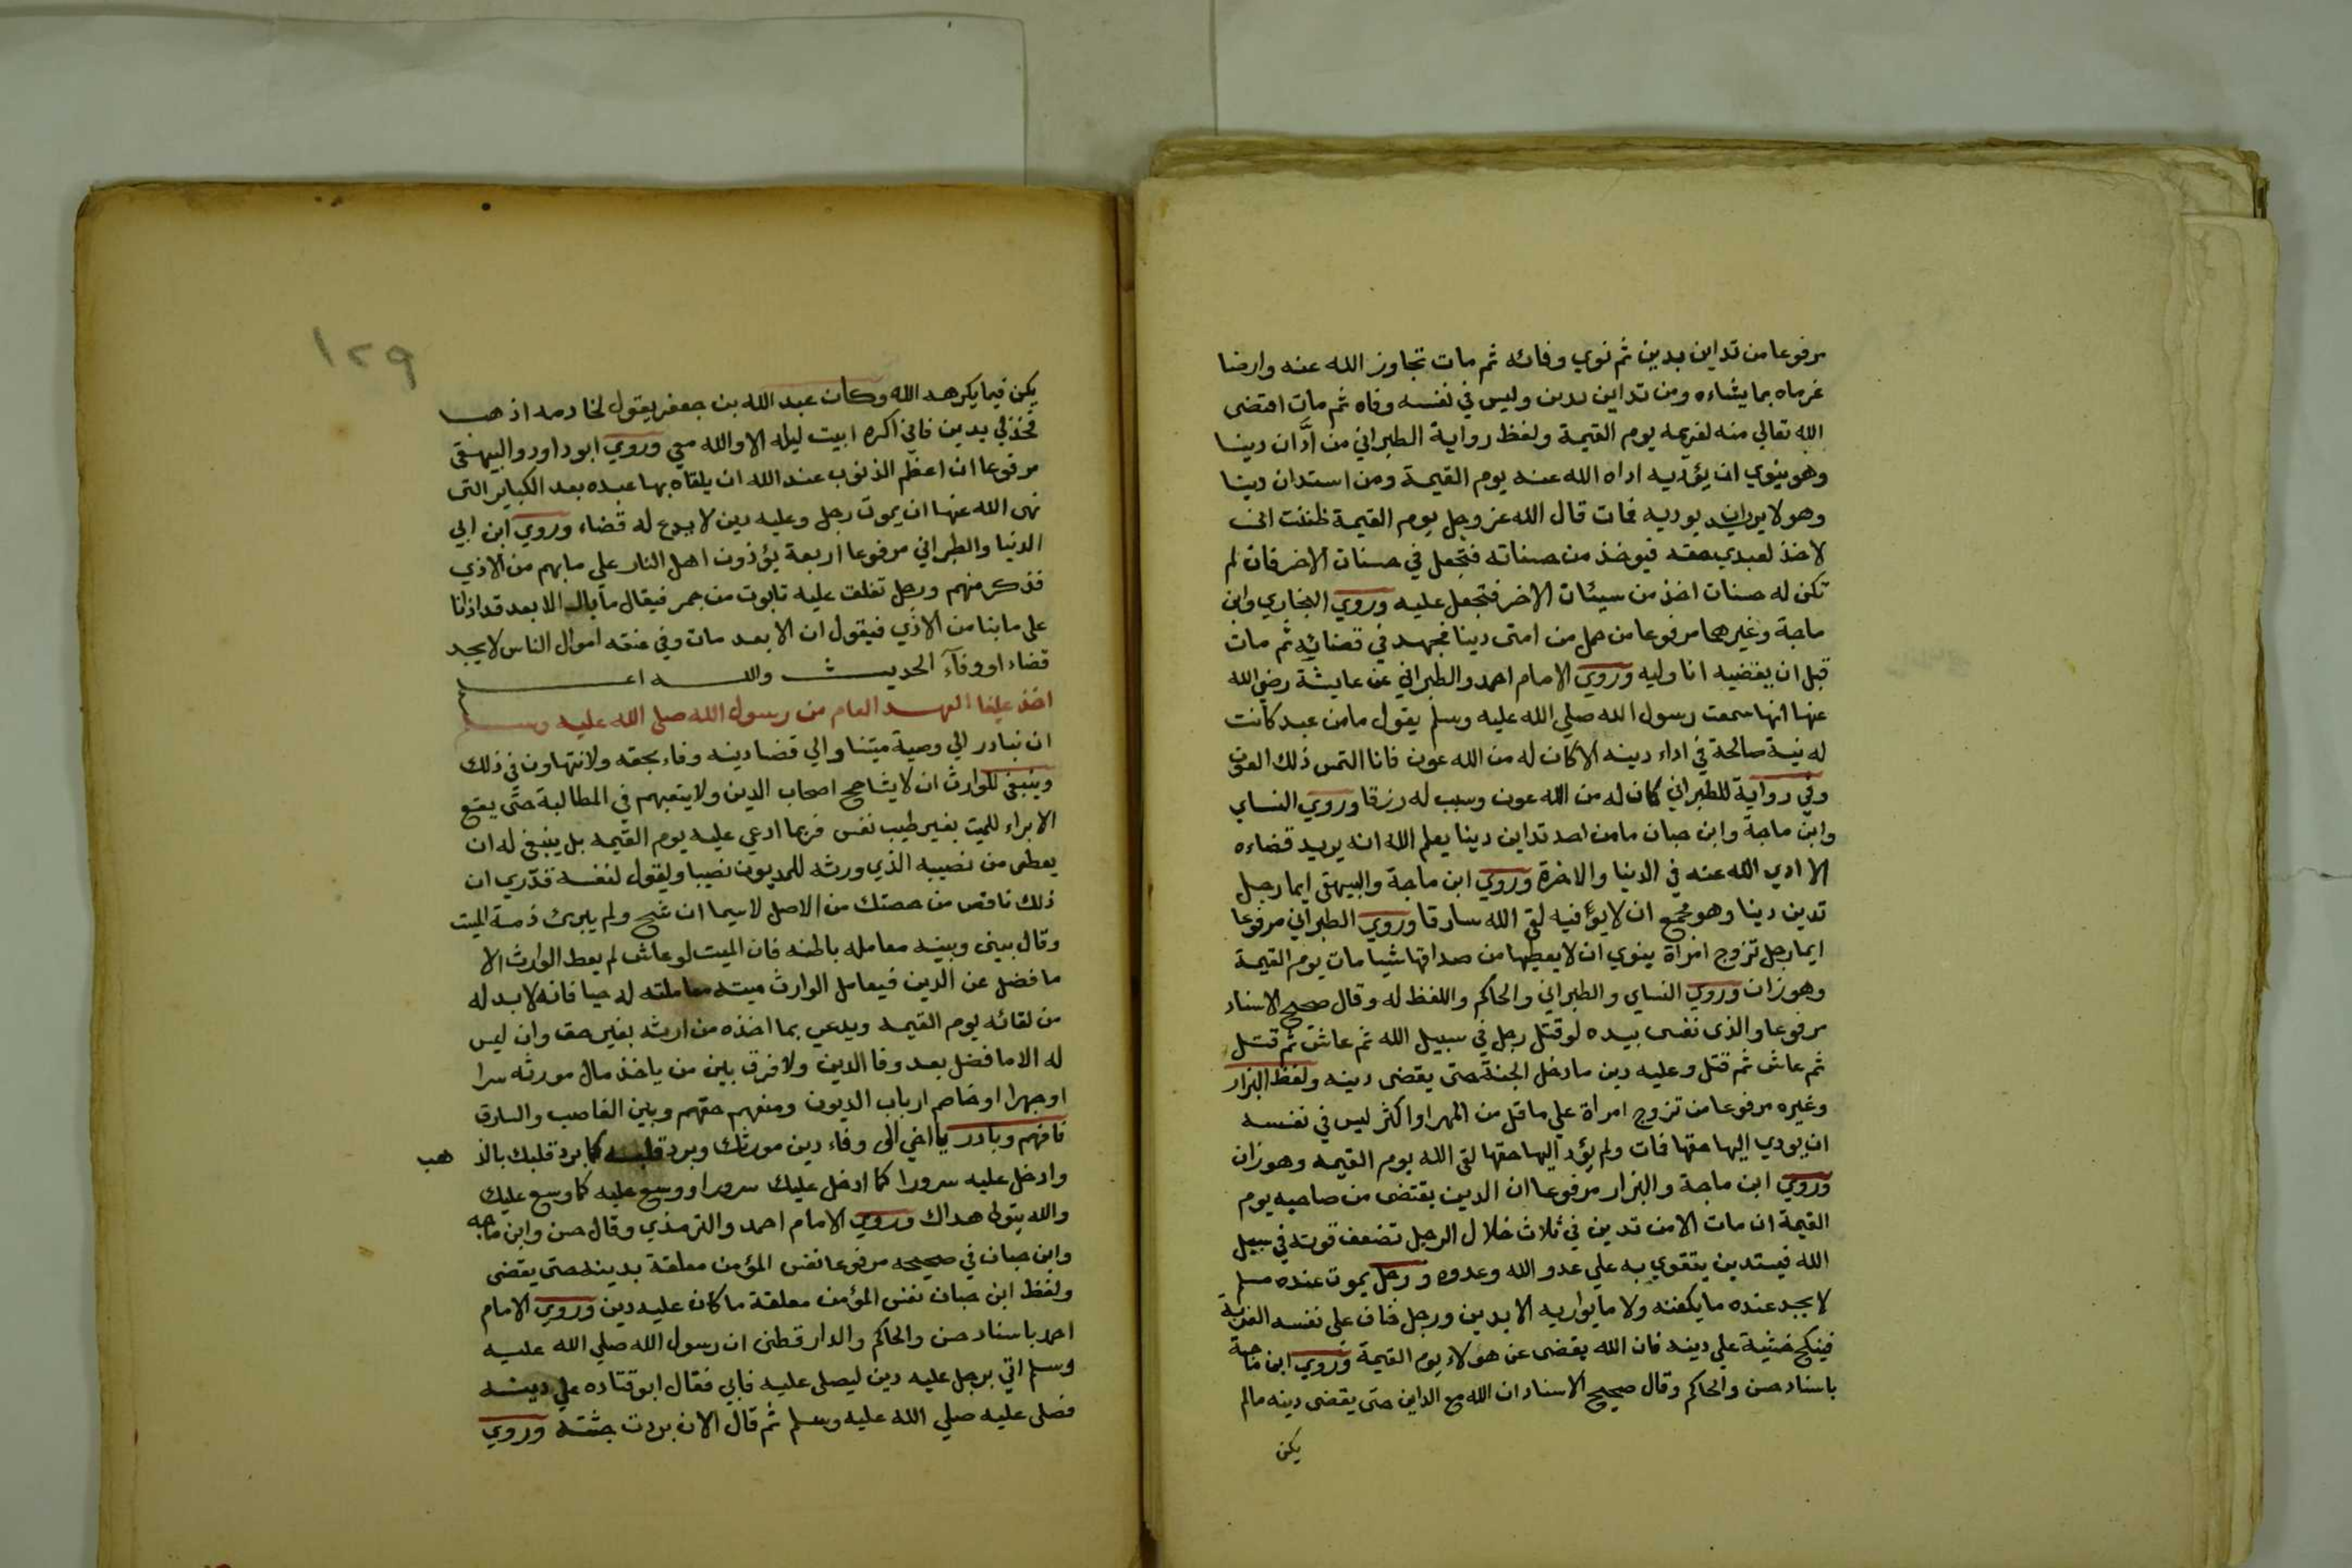 مرفوعا من تداين بدين ثم نوي وفائه ثم مات تجاوز الله عنه وارضا
غرماه بما يشاءه ومن تداين بدين وليس في نفسه وفاه ثم مات اقتضى
الله تعالي منه لغريمه يوم القيمة ولفظ رواية الطبراني من ادَّان دينا
وهو ينوي ان يؤديه اداه الله عنه يوم القيمة ومن استدان دينا
وهو لا يريد ان يوديه فمات قال الله عز وجل يوم القيمة ظننت اني
لا اخذ لعبدي حقه فيوخذ من حسناته فتجعل في حسنات الاخر فان لم
تكن له حسنات اخذ من سيئات الاخر فتجعل عليه وروي البخاري وابن
ماجة وغيرهما مرفوعا من حمل من امتى دينا فجهد في قضائه ثم مات
قبل ان يقضيه انا وليه وروي الامام احمد والطبراني عن عايشة رضي الله
عنها انها سمعت رسول الله صلي الله عليه وسلم يقول ما من عبد كانت
له نية صالحة في اداء دينه الا كان له من الله عون فانا التمس ذلك العون
وفي رواية للطبراني كان له من الله عون وسبب له رزقا وروي النساي
وابن ماجة وابن حبان ما من احد تداين دينا يعلم الله انه يريد قضاءه
الا ادي الله عنه في الدنيا والاخرة وروي ابن ماجة والبيهقى ايما رجل
تدين دينا وهو مجمع ان لا يوفيه لقى الله سارقا وروي الطبراني مرفوعا
ايما رجل تزوج امراة ينوي ان لا يعطيها من صداقها شيا مات يوم القيمة
وهو زان وروي النساي والطبراني والحاكم واللفظ له وقال صحيح الاسناد
مرفوعا والذى نفسى بيده لو قتل رجل في سبيل الله ثم عاش ثم قتل
ثم عاش ثم قتل وعليه دين ما دخل الجنة حتى يقضى دينه ولفظ البزار
وغيره مرفوعا من تزوج امراة علي ما قل من المهر او اكثر ليس في نفسه
ان يودي اليها حقها فات ولم يؤد اليها حقها لقى الله يوم القيمه وهو زان
وروي ابن ماجة والبزار مرفوعا ان الدين يقتضى من صاحبه يوم
القيمة ان مات الا من تدين في ثلاث خلال الرجل تضعف قوته في سبيل
الله فيستدين يتقوي به علي عدو الله وعدوه ورجل يموت عنده مسلم
لا يجد عنده ما يكفنه ولا ما يواريه الا بدين ورجل خاف على نفسه العزبة
فينكح خشية علي دينه فان الله يقضى عن هولاء يوم القيمة وروي ابن ماجة
باسناد حسن والحاكم وقال صحيح الاسناد ان الله مع الداين حتى يقضى دينه مالم
يكن
١٢٩
يكن فيما يكرهه الله وكان عبد الله بن جعفر يقول لخادمه اذهب
فخذ لي بدين فاني اكره ابيت ليله الا والله معي وروي ابو داود والبيهقى
مرفوعا ان اعظم الذنوب عند الله ان يلقاه بها عبده بعد الكباير التى
نهى الله عنها ان يموت رجل وعليه دين لا يدع له قضاء وروي ابن ابي
الدنيا والطبراني مرفوعا اربعة يؤذون اهل النار علي ما بهم من الاذي
فذكر منهم ورجل تغلق عليه تابوت من جمر فيقال ما بال الابعد قد اذانا
على ما بنا من الاذي فيقول ان الابعد مات وفي عنقه اموال الناس لا يجد
قضاء او وفآء الحديث والله اعلم
اخذ علينا العهد العام من رسول الله صلى الله عليه وسلم
ان نبادر الي وصية ميتنا والي قضا دينه وفاء بحقه ولا نتهاون في ذلك
وينبغي للوارث ان لا يشاحح اصحاب الدين ولا يتعبهم في المطالبة حتى يقع
الابراء للميت بغير طيب نفس فربما ادعي عليه يوم القيمه بل ينبغي له ان
يعطى من نصيبه الذي ورثه للمديون نصيبا وليقول لنفسه قدّري ان
ذلك ناقص من حصتك من الاصل لاسيما ان شح ولم يبرئ ذمة الميت
وقال بينى وبينه معامله باطنه فان الميت لو عاش لم يعط الوارث الا
ما فضل عن الدين فيعامل الوارث ميته معاملته له حيا فانه لا بد له
من لقائه يوم القيمه ويدعي بما اخذه من ارثه بغير حق وان ليس
له الا ما فضل بعد وفا الدين ولا فرق بين من ياخذ مال مورثه سرا
او جهرا او خاصم ارباب الديون ومنعهم حقهم وبين الغاصب والسارق
فافهم وبادر يا اخي الى وفاء دين مورثك وبرد قلبه كما برد قلبك بالذ هب
وادخل عليه سرورا كما ادخل عليك سرورا ووسع عليه كما وسع عليك
والله يتولى هداك وروي الامام احمد والترمذي وقال حسن وابن ماجه
وابن حبان في صحيحه مرفوعا نفس المؤمن معلقة بدينه حتى يقضى
ولفظ ابن حبان نفس المؤمن معلقة ما كان عليه دين وروي الامام
احمد باسناد حسن والحاكم والدارقطنى ان رسول الله صلي الله عليه
وسلم اتي برجل عليه دين ليصلى عليه فابي فقال ابو قتاده علي دينه
فصلى عليه صلي الله عليه وسلم ثم قال الان بردت جثته وروي